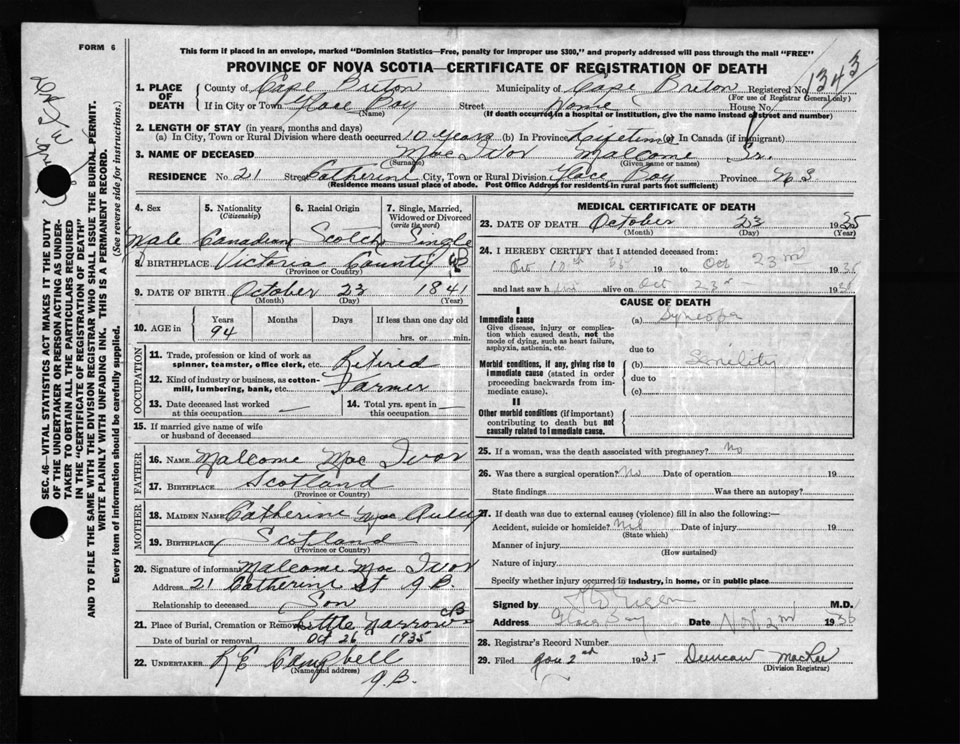 FORM 6
This form if placed in an envelope, marked "Dominion Statistics—Free, penalty for improper use $300," and properly addressed will pass through the mail "FREE"
PROVINCE OF NOVA SCOTIA—CERTIFICATE OF REGISTRATION OF DEATH
1343
1. PLACE OF DEATH
County of Cape Breton Municipality of Cape Breton Registered No.
(For use of Registrar General only)
If in City or Town Glace Bay Street Home House No.
(Name) (If death occurred in a hospital or institution, give the name instead of street and number)
2. LENGTH OF STAY (in years, months and days)
(a) In City, Town or Rural Division where death occurred 10 years (b) In Province Lifetime (c) In Canada (if immigrant)
3. NAME OF DECEASED Mac Ivor Malcome Sr.
(Surname) (Given name or names)
RESIDENCE No. 21 Street Catherine City, Town or Rural Division Glace Bay Province N S
(Residence means usual place of abode. Post Office Address for residents in rural parts not sufficient)
4. Sex
5. Nationality (Citizenship)
6. Racial Origin
7. Single, Married, Widowed or Divorced (write the word)
Male Canadian Scotch Single
8. BIRTHPLACE Victoria County CB
(Province or Country)
9. DATE OF BIRTH October 23 1841
(Month) (Day) (Year)
10. AGE in Years Months Days If less than one day old
94 hrs. or min.
OCCUPATION
11. Trade, profession or kind of work as spinner, teamster, office clerk, etc. Retired
12. Kind of industry or business, as cotton-mill, lumbering, bank, etc. Farmer
13. Date deceased last worked at this occupation —
14. Total yrs. spent in this occupation —
15. If married give name of wife or husband of deceased
FATHER
16. NAME Malcome Mac Ivor
17. BIRTHPLACE Scotland
(Province or Country)
MOTHER
18. MAIDEN NAME Catherine Mac
19. BIRTHPLACE Scotland
(Province or Country)
20. Signature of informant Malcome Mac Ivor
Address 21 Catherine St G.B.
Relationship to deceased Son
21. Place of Burial, Cremation or Removal Little Narrows CB
Date of burial or removal Oct 26 1935
22. UNDERTAKER R E Campbell
(Name and address)
G.B.
MEDICAL CERTIFICATE OF DEATH
23. DATE OF DEATH October 23 1935
(Month) (Day) (Year)
24. I HEREBY CERTIFY that I attended deceased from:
Oct 10th 19 to Oct 23rd 1935
and last saw him alive on Oct 23rd 1935
CAUSE OF DEATH
I
Immediate cause (a) Syncope
Give disease, injury or complication which caused death, not the mode of dying, such as heart failure, asphyxia, asthenia, etc.
due to
Morbid conditions, if any, giving rise to immediate cause (stated in order proceeding backwards from immediate cause).
(b) Senility
due to
(c)
II
Other morbid conditions (if important) contributing to death but not causally related to immediate cause.
25. If a woman, was the death associated with pregnancy? No
26. Was there a surgical operation? No Date of operation 19
State findings Was there an autopsy?
27. If death was due to external causes (violence) fill in also the following:—
Accident, suicide or homicide? Nil Date of injury 19
(State which)
Manner of injury
(How sustained)
Nature of injury
Specify whether injury occurred in industry, in home, or in public place
Signed by Green M.D.
Address Glace Bay Date Nov. 2nd 1935
28. Registrar's Record Number
29. Filed 2nd 1935 Duncan MacRae
(Division Registrar)
SEC. 46—VITAL STATISTICS ACT MAKES IT THE DUTY OF THE UNDERTAKER OR PERSON ACTING AS UNDERTAKER TO OBTAIN ALL THE PARTICULARS REQUIRED IN THE "CERTIFICATE OF REGISTRATION OF DEATH"
AND TO FILE THE SAME WITH THE DIVISION REGISTRAR WHO SHALL ISSUE THE BURIAL PERMIT.
WRITE PLAINLY WITH UNFADING INK. THIS IS A PERMANENT RECORD.
Every item of information should be carefully supplied. (See reverse side for instructions.)